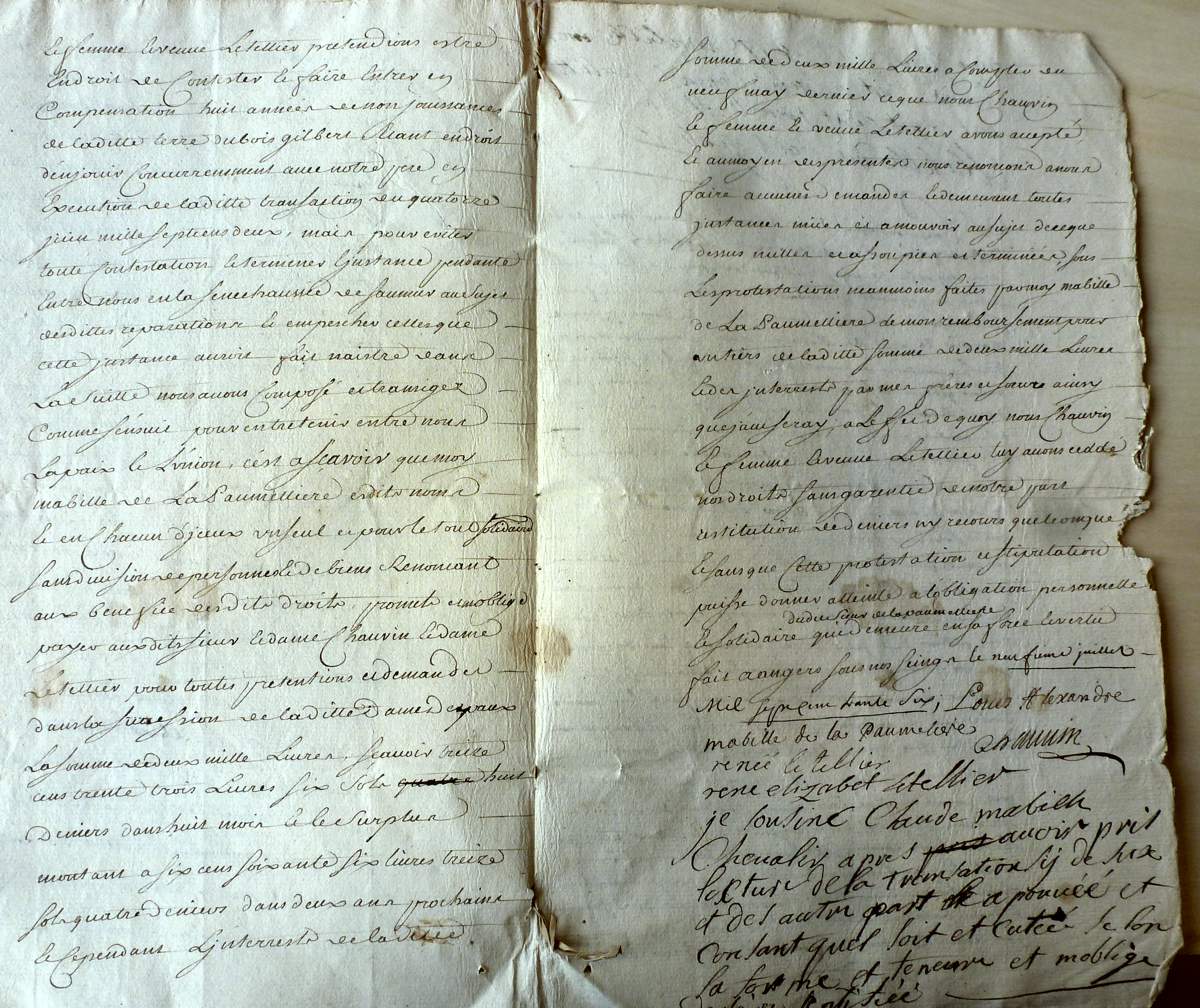 et femme et veuve Letellier pretendions estre
en droit de Contester et faire Entrer en
Compensation huit années de non Jouissances
de laditte terre du bois gilbert Etant en droit
d'en jouir Concurremment avec notre frere en
Execution de laditte transaction du quatorze
juin mille septcens deux, mais pour eviter
toute Contestation et terminer L'jnstance pendante
Entre nous en la senechaussée de saumur au sujet
desdittes reparations et empescher celles que
cette jnstance auroit fait naistre dans
La suitte nous avons Composé et transigez
Comme s'ensuit pour entretenir entre nous
La paix et L'union, c'est a scavoir que moy
mabille de La Paumelliere esdits noms
et en Chacun d'jceux un seul et pour le tout solidaire
sans division de personnes et de biens Renoncant
aux benefice desdits droits promets et m'oblige
payer auxdits sieur et dame Chauvin et dame
Letellier pour toutes pretentions et demandes
dans la succession de laditte dame
La somme de deux mille Livres scavoir treize
cens trente trois Livres six sols quatre huit
deniers dans huit mois et le surplus
montant a six cens soixante six livres treize
sols quatre deniers dans deux ans prochains
et Cependant L'jnterrests de laditte
somme de deux mille Livres a Compter du
neuf may dernier ce que nous Chauvin
et femme et veuve Letellier avons accepté
et au moyen des presentes nous renoncons a nous
faire aucunes demandes et demeurent touttes
jnstances mües et a mouvoir au sujet de ce que
dessus nulles et assoupies et terminées sous
Les protestations neanmoins faites par moy mabille
de La Paumelliere de mon remboursement pour
un tiers de laditte somme de deux mille Livres
et des jnterrests par mes freres et soeurs ainsy
que j'auiseray, a Leffet de quoy nous Chauvin
et femme et veuve Letellier luy avons ceddé
nos droits sans garentie de notre part
restitution de deniers ny recours quelconque
et sans que Cette protestation et stipulation
puisse donner atteinte a L'obligation personnelle
dudit sieur de la paumelliere
et solidaire qui demeure en sa force et vertu
fait a angers sous nos seings le neufieme juillet
Mil sept cent trante six; Louis Alexandre
mabille de la Paumeliere
Chauvin
renée le tellier
rene elizabet letellier
je sousiné Claude mabille
Chevalier apres avoir pris
lecture de la transation sy de
et des autre part la a prouvée et
Consant quel soit et Cutée se lon
sa forme et teneure et moblige